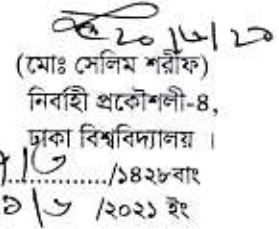 (মোঃ সেলিম শরীফ)
নির্বাহী প্রকৌশলী-৪,
ঢাকা বিশ্ববিদ্যালয় ।
/১৪২৮বাং
/২০২১ ইং